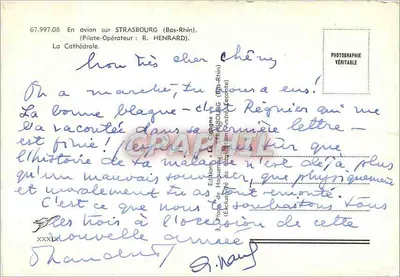 67.997.06 En avion sur STRASBOURG (Bas-Rhin).
(Pilote-Opérateur : R. HENRARD).
La Cathédrale.
PHOTOGRAPHIE
VÉRITABLE
Mon très cher Chéry
On a marché, tu nous a eus!
La bonne blague - c'est Régnier qui me
l'a racontée dans sa dernière lettre -
est finie! sûr que
l'histoire de la malade n'est déjà plus
qu'un mauvais souvenir, que physiquement
et moralement tu as tout remonté.
C'est ce que nous te souhaitons tous
les trois à l'occasion de cette
nouvelle année
CPARAMA
XXXIX